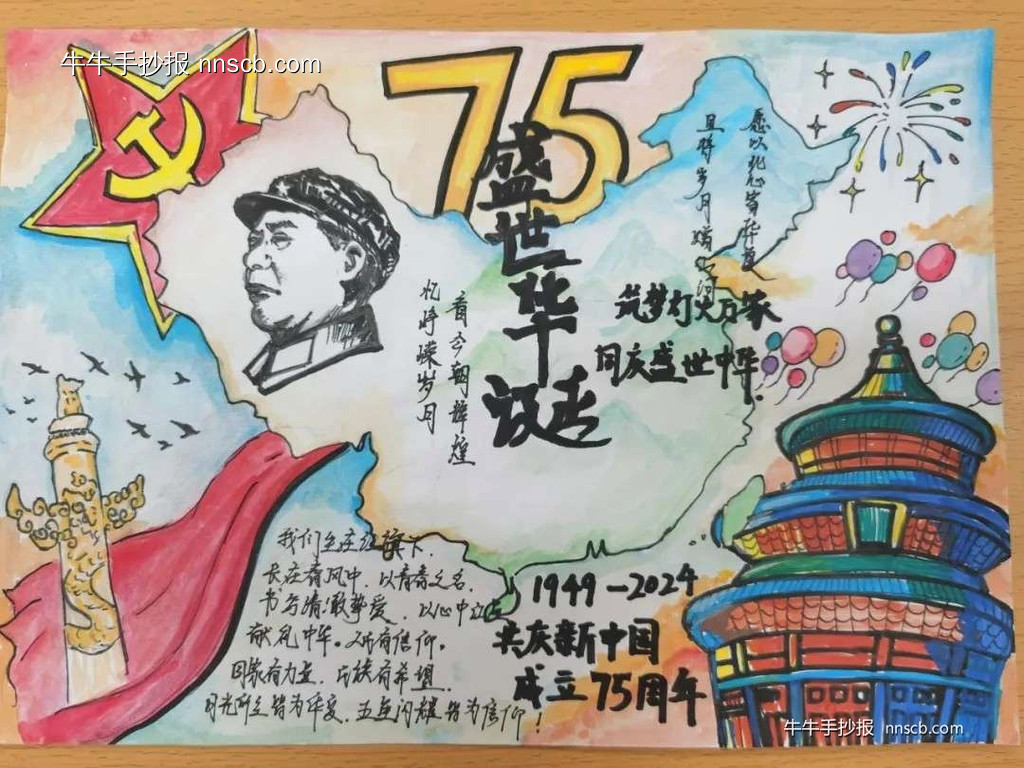 牛牛手抄报 nnscb.com
75
盛世华诞
愿以此心寄华夏
且将岁月赠山河
筑梦灯火万家
同庆盛世中华.
看今朝辉煌
忆峥嵘岁月
我们生在红旗下,
长在春风中, 以青春之名,
书写情敢挚爱, 以心中
献礼中华。人所有信仰。
国家有力量, 民族有希望,
目光所至皆为华夏, 五星闪耀皆为信仰!
1949-2024
共庆新中国
成立75周年
牛牛手抄报 nnscb.com